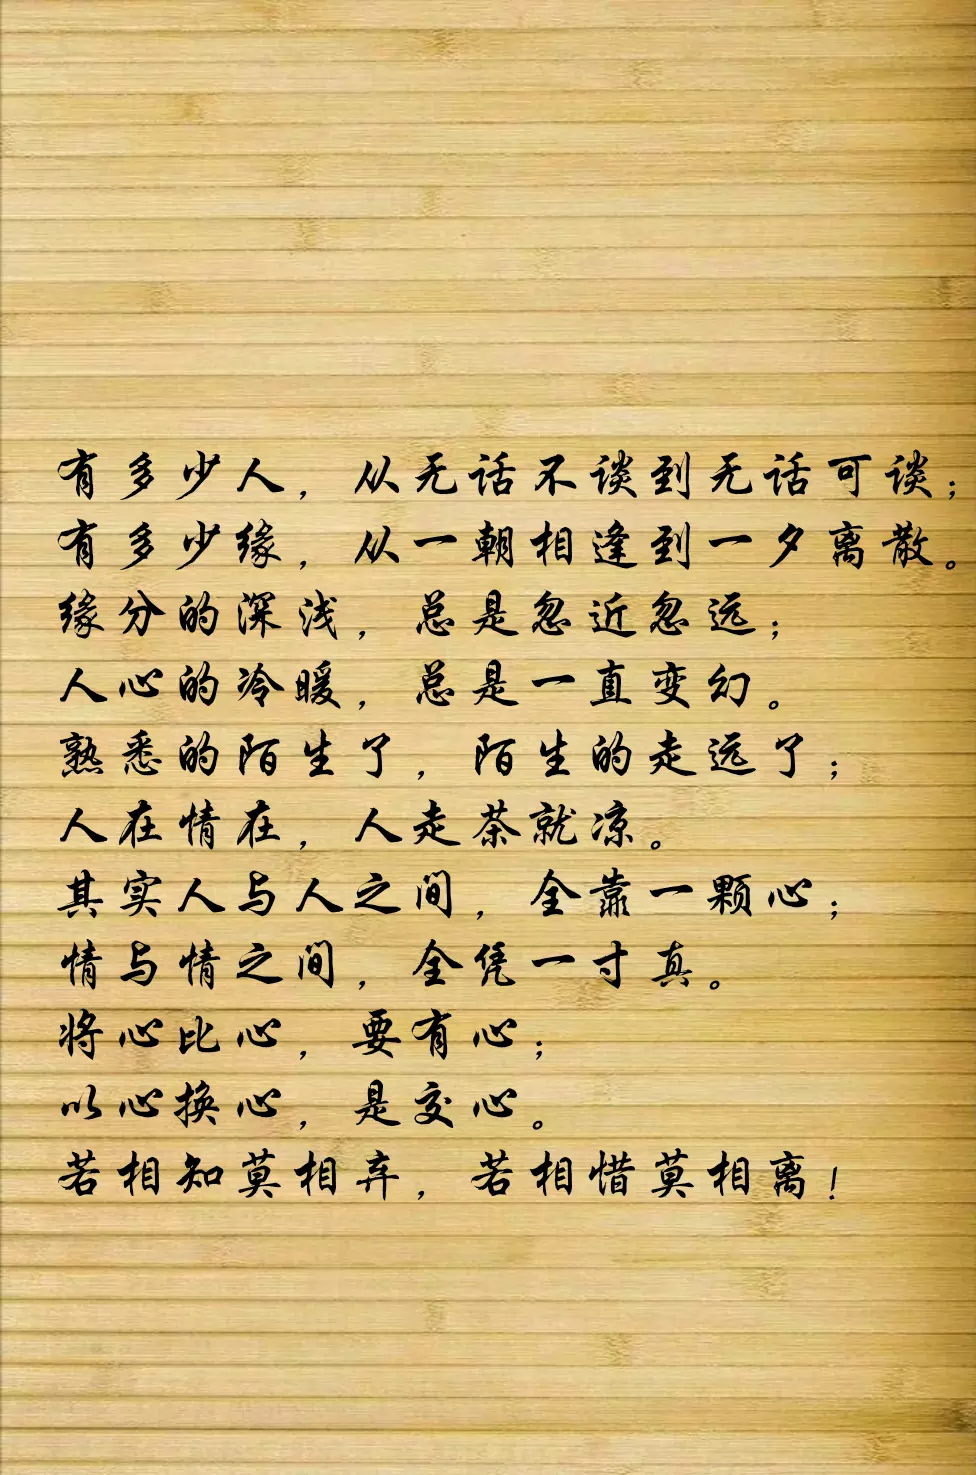 有多少人，从无话不谈到无话可谈；
有多少缘，从一朝相逢到一夕离散。
缘分的深浅，总是忽近忽远；
人心的冷暖，总是一直变幻。
熟悉的陌生了，陌生的走远了；
人在情在，人走茶就凉。
其实人与人之间，全靠一颗心；
情与情之间，全凭一寸真。
将心比心，要有心；
以心换心，是交心。
若相知莫相弃，若相惜莫相离！